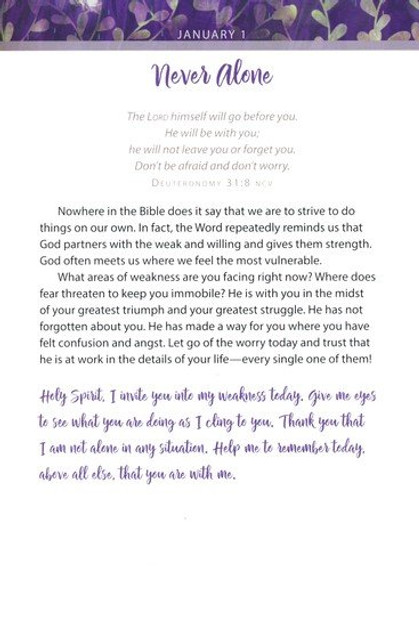 JANUARY 1
Never Alone
The LORD himself will go before you.
He will be with you;
he will not leave you or forget you.
Don't be afraid and don't worry.
DEUTERONOMY 31:8 NCV
Nowhere in the Bible does it say that we are to strive to do
things on our own. In fact, the Word repeatedly reminds us that
God partners with the weak and willing and gives them strength.
God often meets us where we feel the most vulnerable.
What areas of weakness are you facing right now? Where does
fear threaten to keep you immobile? He is with you in the midst
of your greatest triumph and your greatest struggle. He has not
forgotten about you. He has made a way for you where you have
felt confusion and angst. Let go of the worry today and trust that
he is at work in the details of your life—every single one of them!
Holy Spirit, I invite you into my weakness today. Give me eyes
to see what you are doing as I cling to you. Thank you that
I am not alone in any situation. Help me to remember today,
above all else, that you are with me.